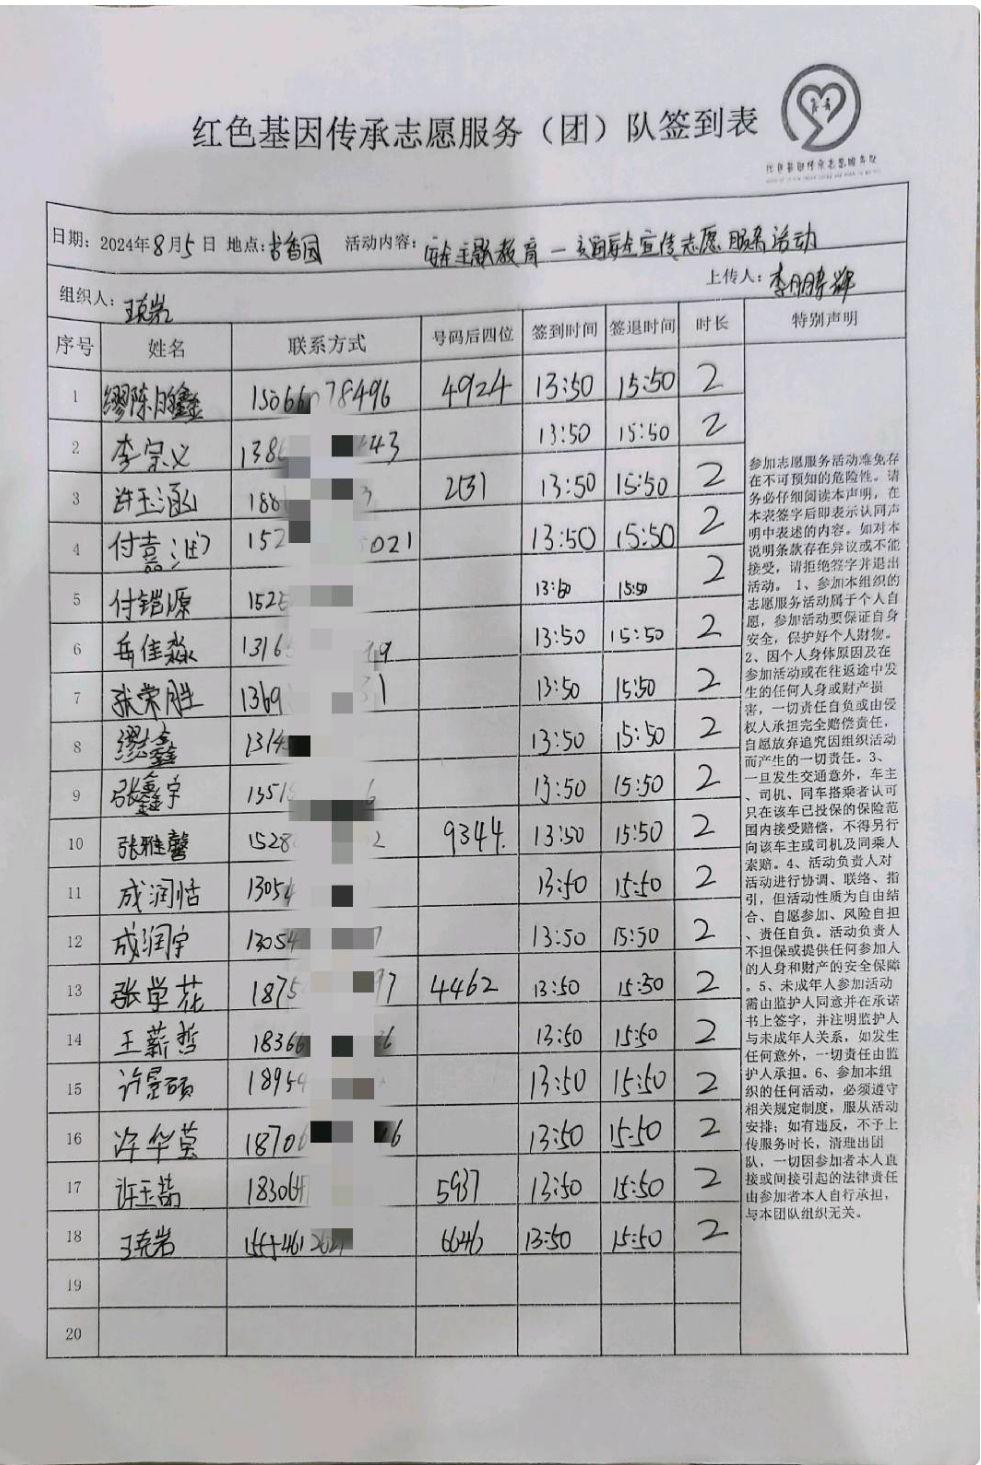 红色基因传承志愿服务（团）队签到表
红色基因传承志愿服务队
日期：2024年8月5日 地点：书香园 活动内容：安全主题教育—交通安全宣传志愿服务活动
组织人：王克岩 上传人：李鹏辉
序号 姓名 联系方式 号码后四位 签到时间 签退时间 时长 特别声明
1 缪陈鹏鑫 4924 13:50 15:50 2
2 李宗义 13:50 15:50 2
3 许玉涵 2131 13:50 15:50 2
4 付嘉润 13:50 15:50 2
5 付锴源 13:50 15:50 2
6 岳佳淼 13:50 15:50 2
7 张荣胜 13:50 15:50 2
8 缪鑫 13:50 15:50 2
9 张鑫宇 13:50 15:50 2
10 张雅馨 9344. 13:50 15:50 2
11 成润恬 13:50 15:50 2
12 成润宇 13:50 15:50 2
13 张学花 4462 13:50 15:50 2
14 王薪哲 13:50 15:50 2
15 许昙硕 13:50 15:50 2
16 许华莹 13:50 15:50 2
17 许玉菡 5937 13:50 15:50 2
18 王克岩 6646 13:50 15:50 2
19
20
参加志愿服务活动难免存
在不可预知的危险性。请
务必仔细阅读本声明，在
本表签字后即表示认同声
明中表述的内容。如对本
说明条款存在异议或不能
接受，请拒绝签字并退出
活动。 1、参加本组织的
志愿服务活动属于个人自
愿，参加活动要保证自身
安全，保护好个人财物。
2、因个人身体原因及在
参加活动或在往返途中发
生的任何人身或财产损
害，一切责任自负或由侵
权人承担完全赔偿责任，
自愿放弃追究因组织活动
而产生的一切责任。3、
一旦发生交通意外，车主
、司机、同车搭乘者认可
只在该车已投保的保险范
围内接受赔偿，不得另行
向该车主或司机及同乘人
索赔。4、活动负责人对
活动进行协调、联络、指
引，但活动性质为自由结
合、自愿参加、风险自担
、责任自负。活动负责人
不担保或提供任何参加人
的人身和财产的安全保障
。5、未成年人参加活动
需由监护人同意并在承诺
书上签字，并注明监护人
与未成年人关系，如发生
任何意外，一切责任由监
护人承担。6、参加本组
织的任何活动，必须遵守
相关规定制度，服从活动
安排；如有违反，不予上
传服务时长，清理出团
队，一切因参加者本人直
接或间接引起的法律责任
由参加者本人自行承担，
与本团队组织无关。